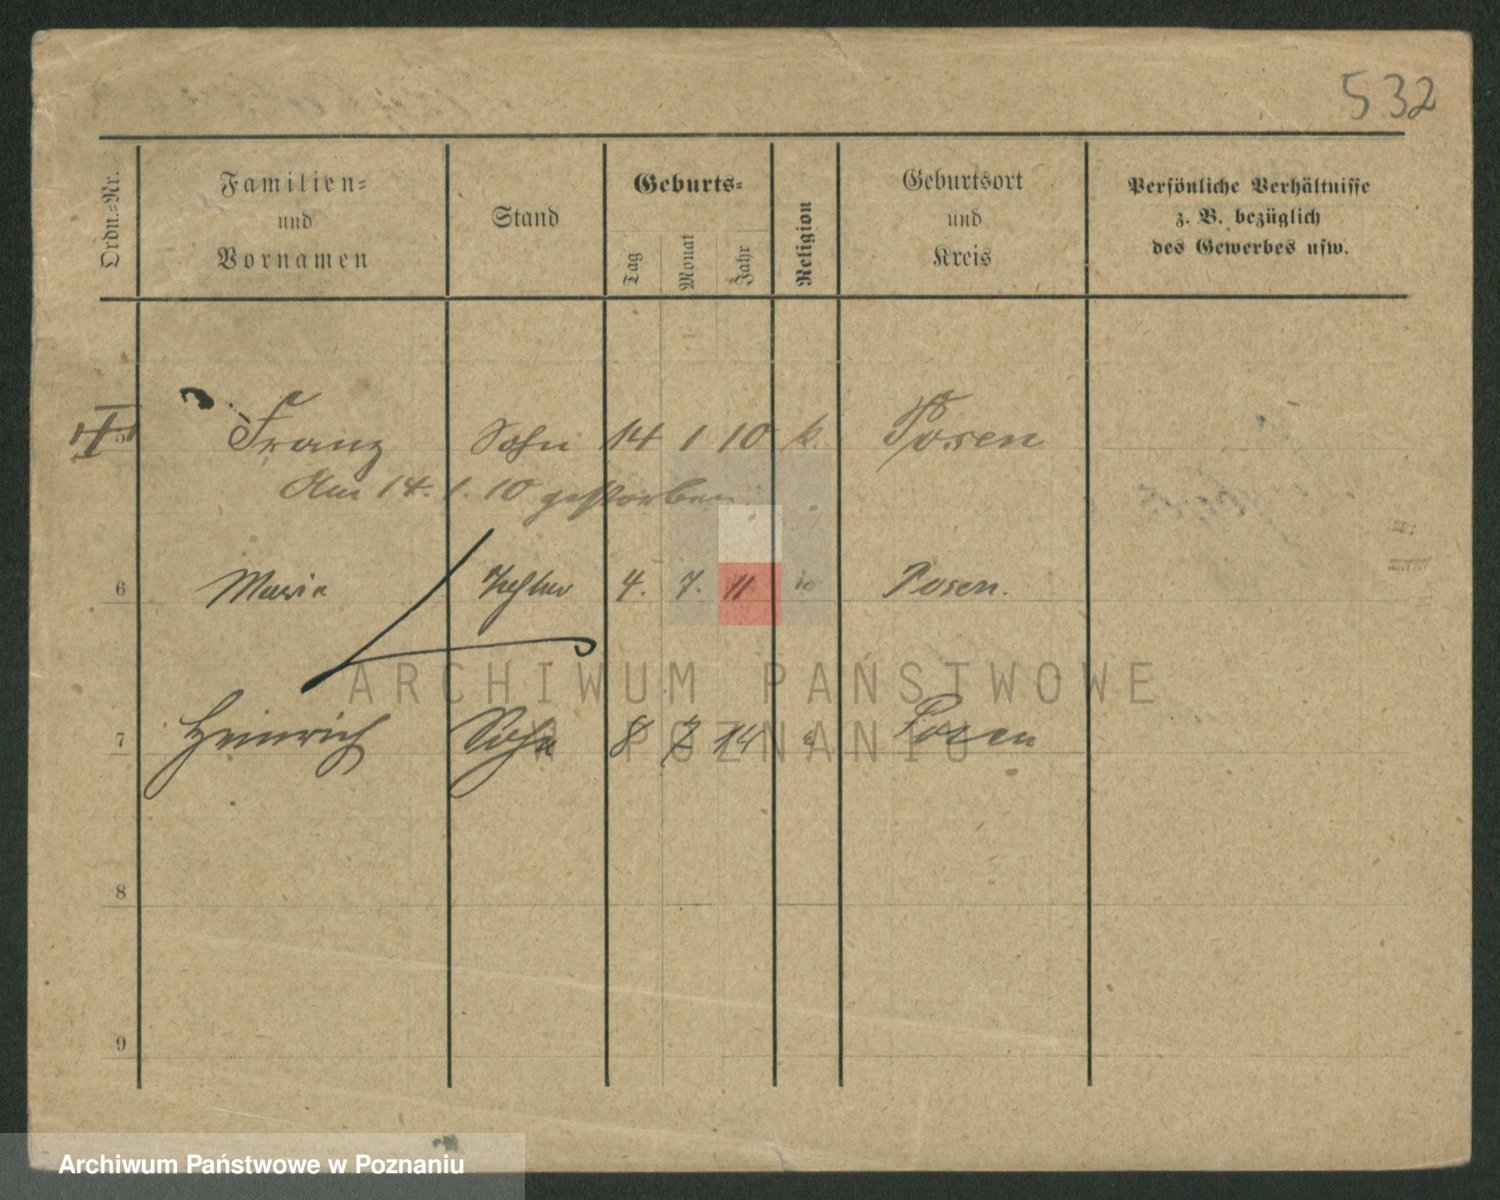 532
Ordn.-Nr.
Familien- und Vornamen
Stand
Geburts-
Tag
Monat
Jahr
Religion
Geburtsort und Kreis
Persönliche Verhältnisse z. B. bezüglich des Gewerbes usw.
5 Franz Sohn 14 1 10 k. Posen
Am 14. 1. 10 gestorben
6 Marie Tochter 4. 7. 11. Posen.
7 Heinrich Sohn 8 7 14 Posen
8
9
ARCHIWUM PAŃSTWOWE
W POZNANIU
Archiwum Państwowe w Poznaniu